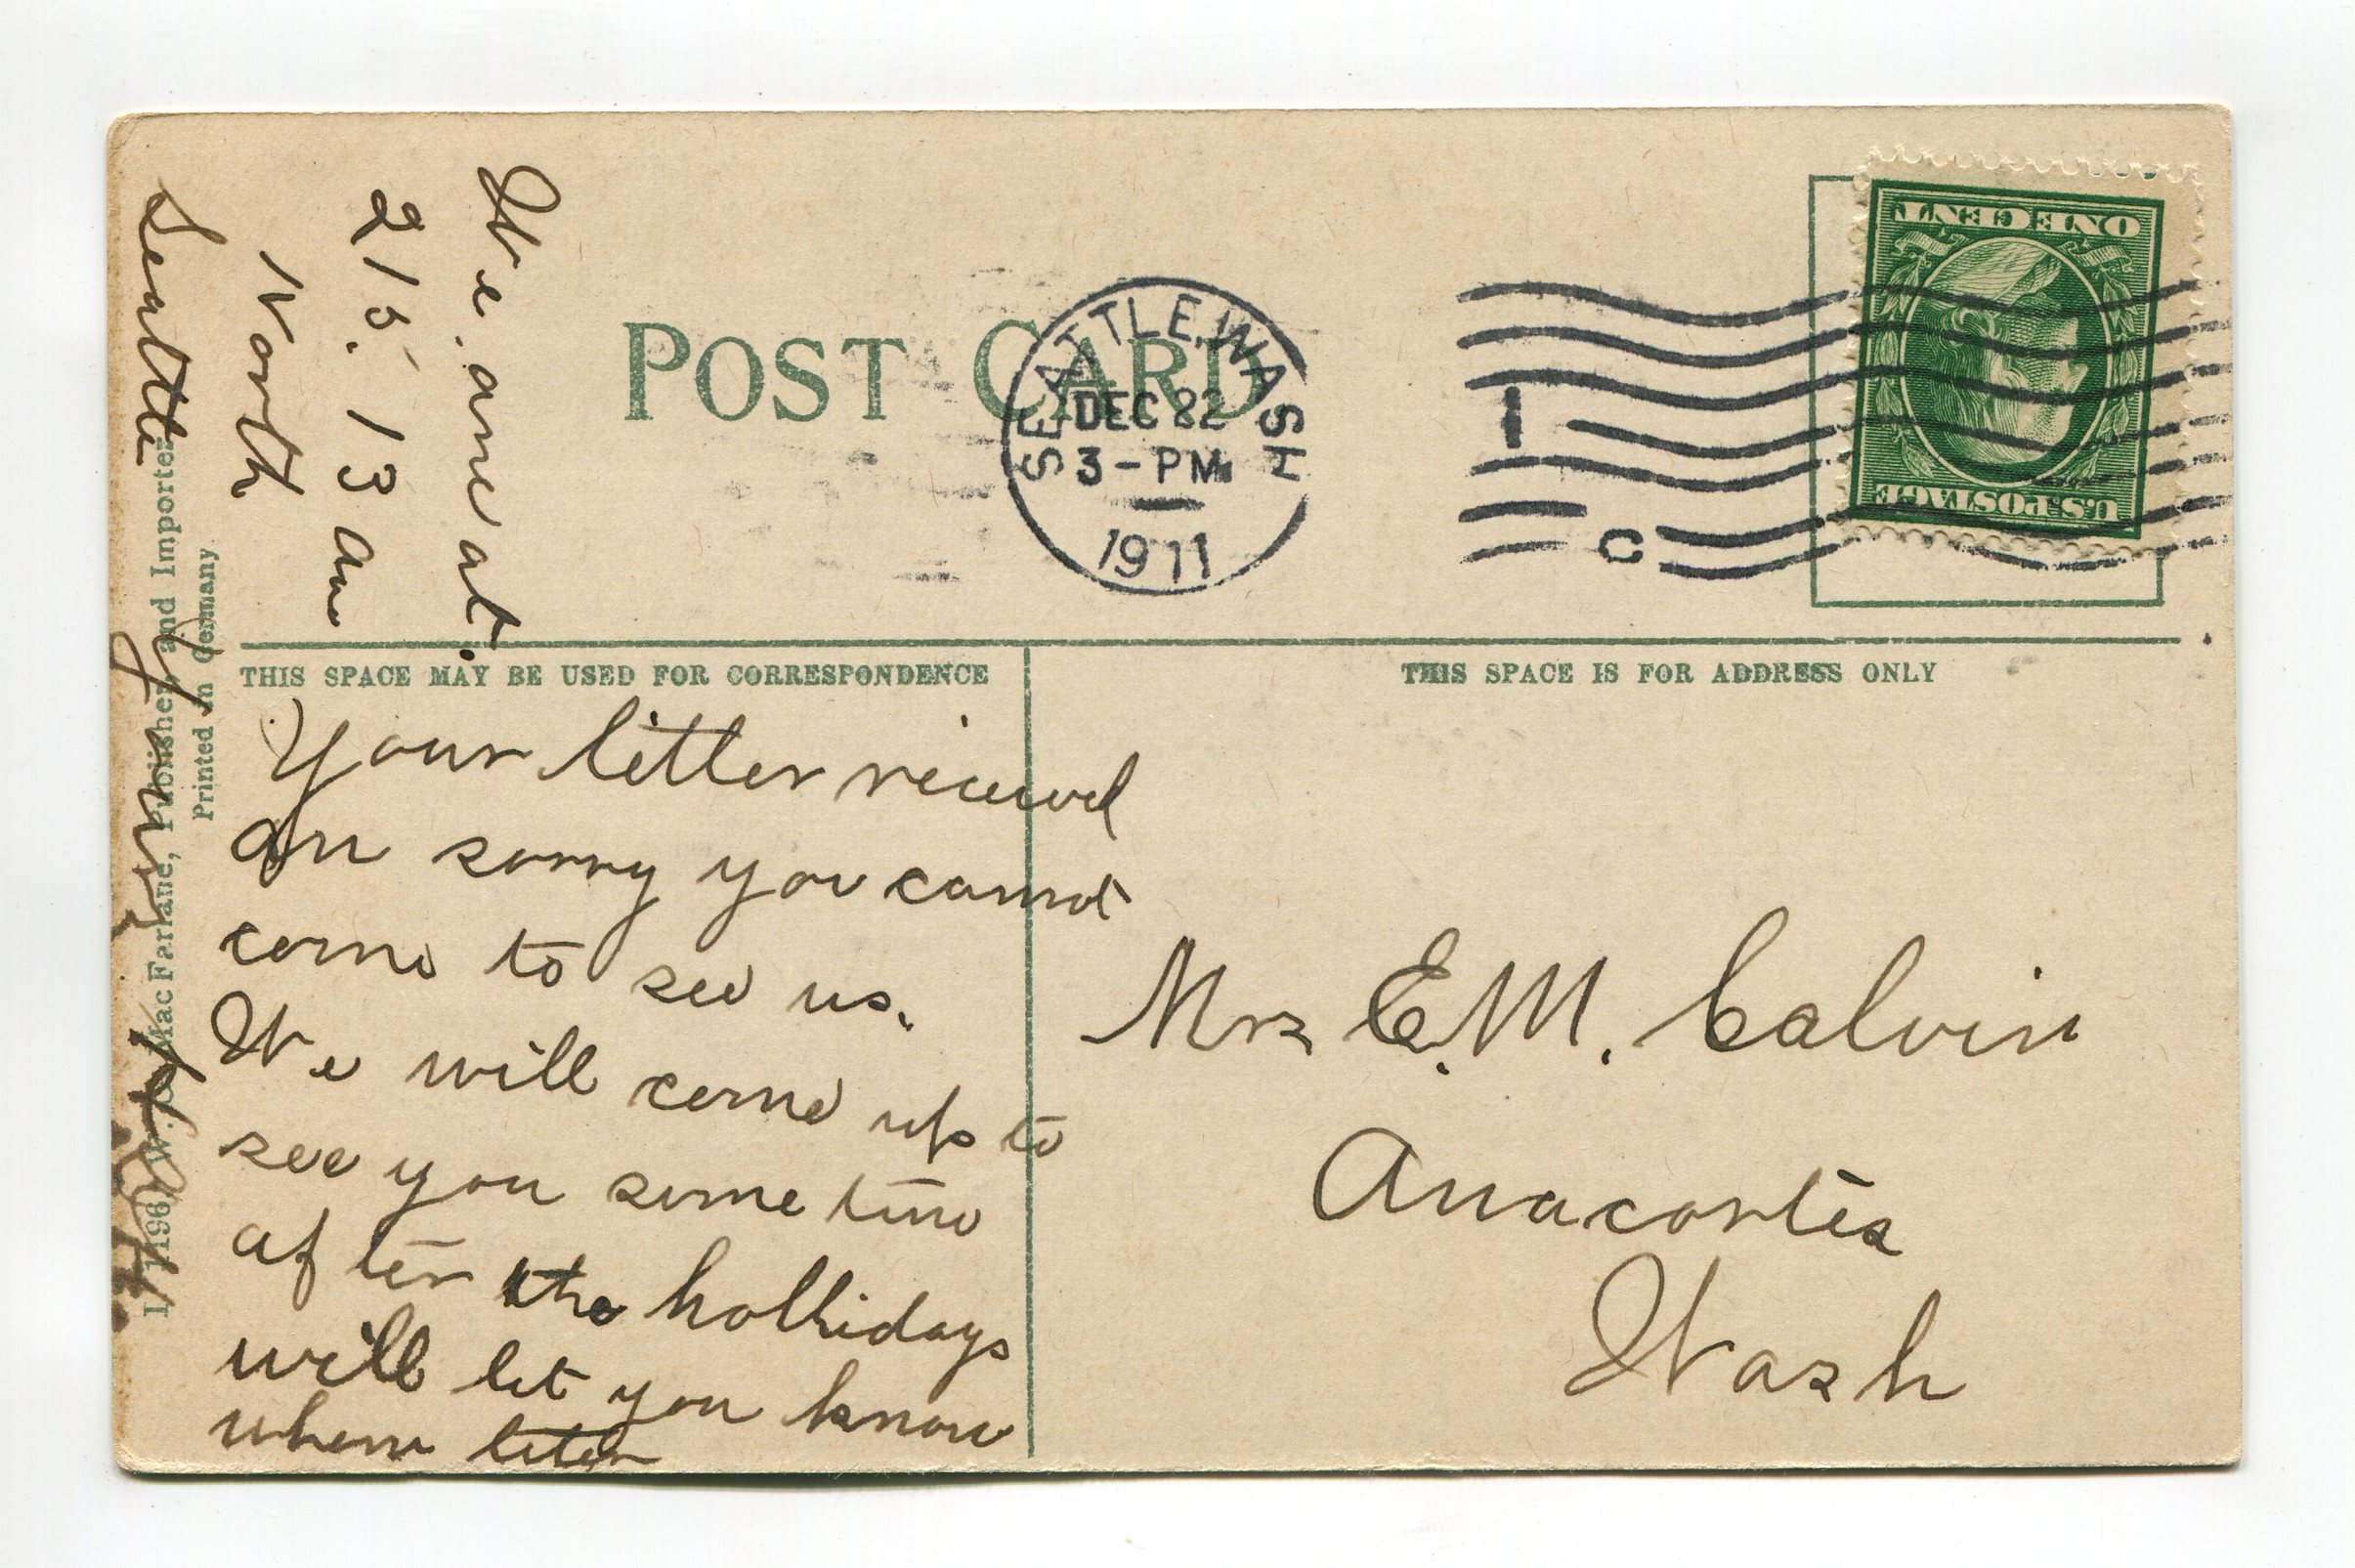 POST CARD
SEATTLE, WASH
DEC 22
3-PM
1911
1
C
ONE CENT
U.S. POSTAGE
We are at.
215. 13 Ave
North
Seattle
THIS SPACE MAY BE USED FOR CORRESPONDENCE
THIS SPACE IS FOR ADDRESS ONLY
Your letter recieved
am sorry you cannot
come to see us.
We will come up to
see you some time
after the hollidays
will let you know
when later
Mrs E.M. Calvin
Anacortes
Wash
W. G. MacFarlane, Publisher and Importer
Printed in Germany